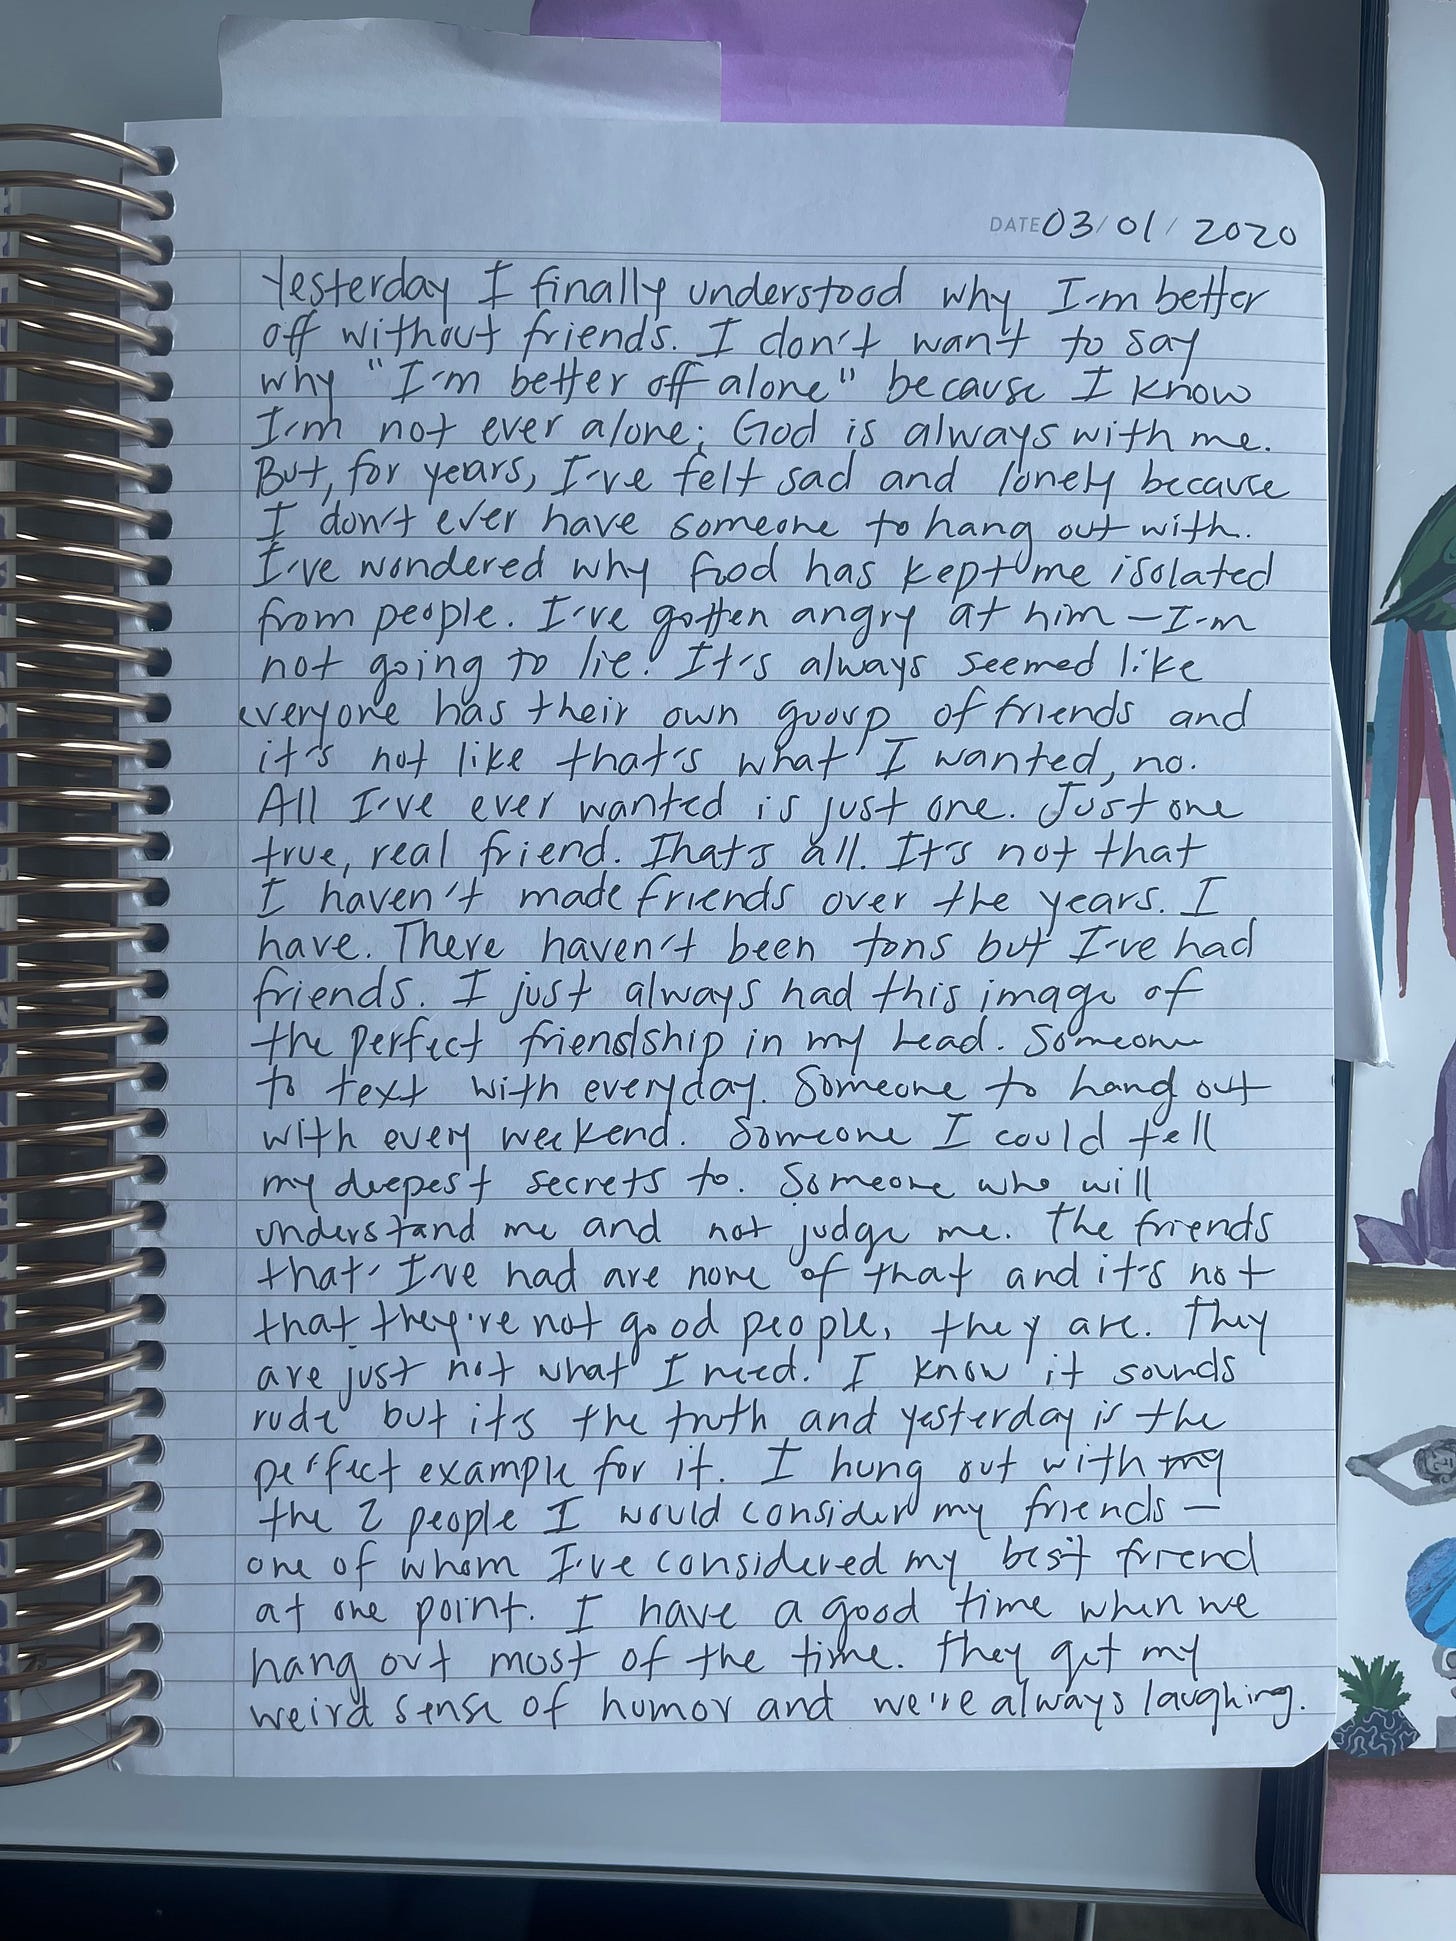 DATE 03/01/2020
Yesterday I finally understood why I'm better
off without friends. I don't want to say
why "I'm better off alone" because I know
I'm not ever alone; God is always with me.
But, for years, I've felt sad and lonely because
I don't ever have someone to hang out with.
I've wondered why God has kept me isolated
from people. I've gotten angry at him — I'm
not going to lie. It's always seemed like
everyone has their own guoup of friends and
it's not like that's what I wanted, no.
All I've ever wanted is just one. Just one
true, real friend. That's all. It's not that
I haven't made friends over the years. I
have. There haven't been tons but I've had
friends. I just always had this image of
the perfect friendship in my head. Someone
to text with everyday. Someone to hang out
with every weekend. Someone I could tell
my deepest secrets to. Someone who will
understand me and not judge me. The friends
that I've had are none of that and it's not
that they're not good people, they are. They
are just not what I need. I know it sounds
rude but it's the truth and yesterday is the
perfect example for it. I hung out with my
the 2 people I would consider my friends —
one of whom I've considered my best friend
at one point. I have a good time when we
hang out most of the time. They get my
weird sense of humor and we're always laughing.